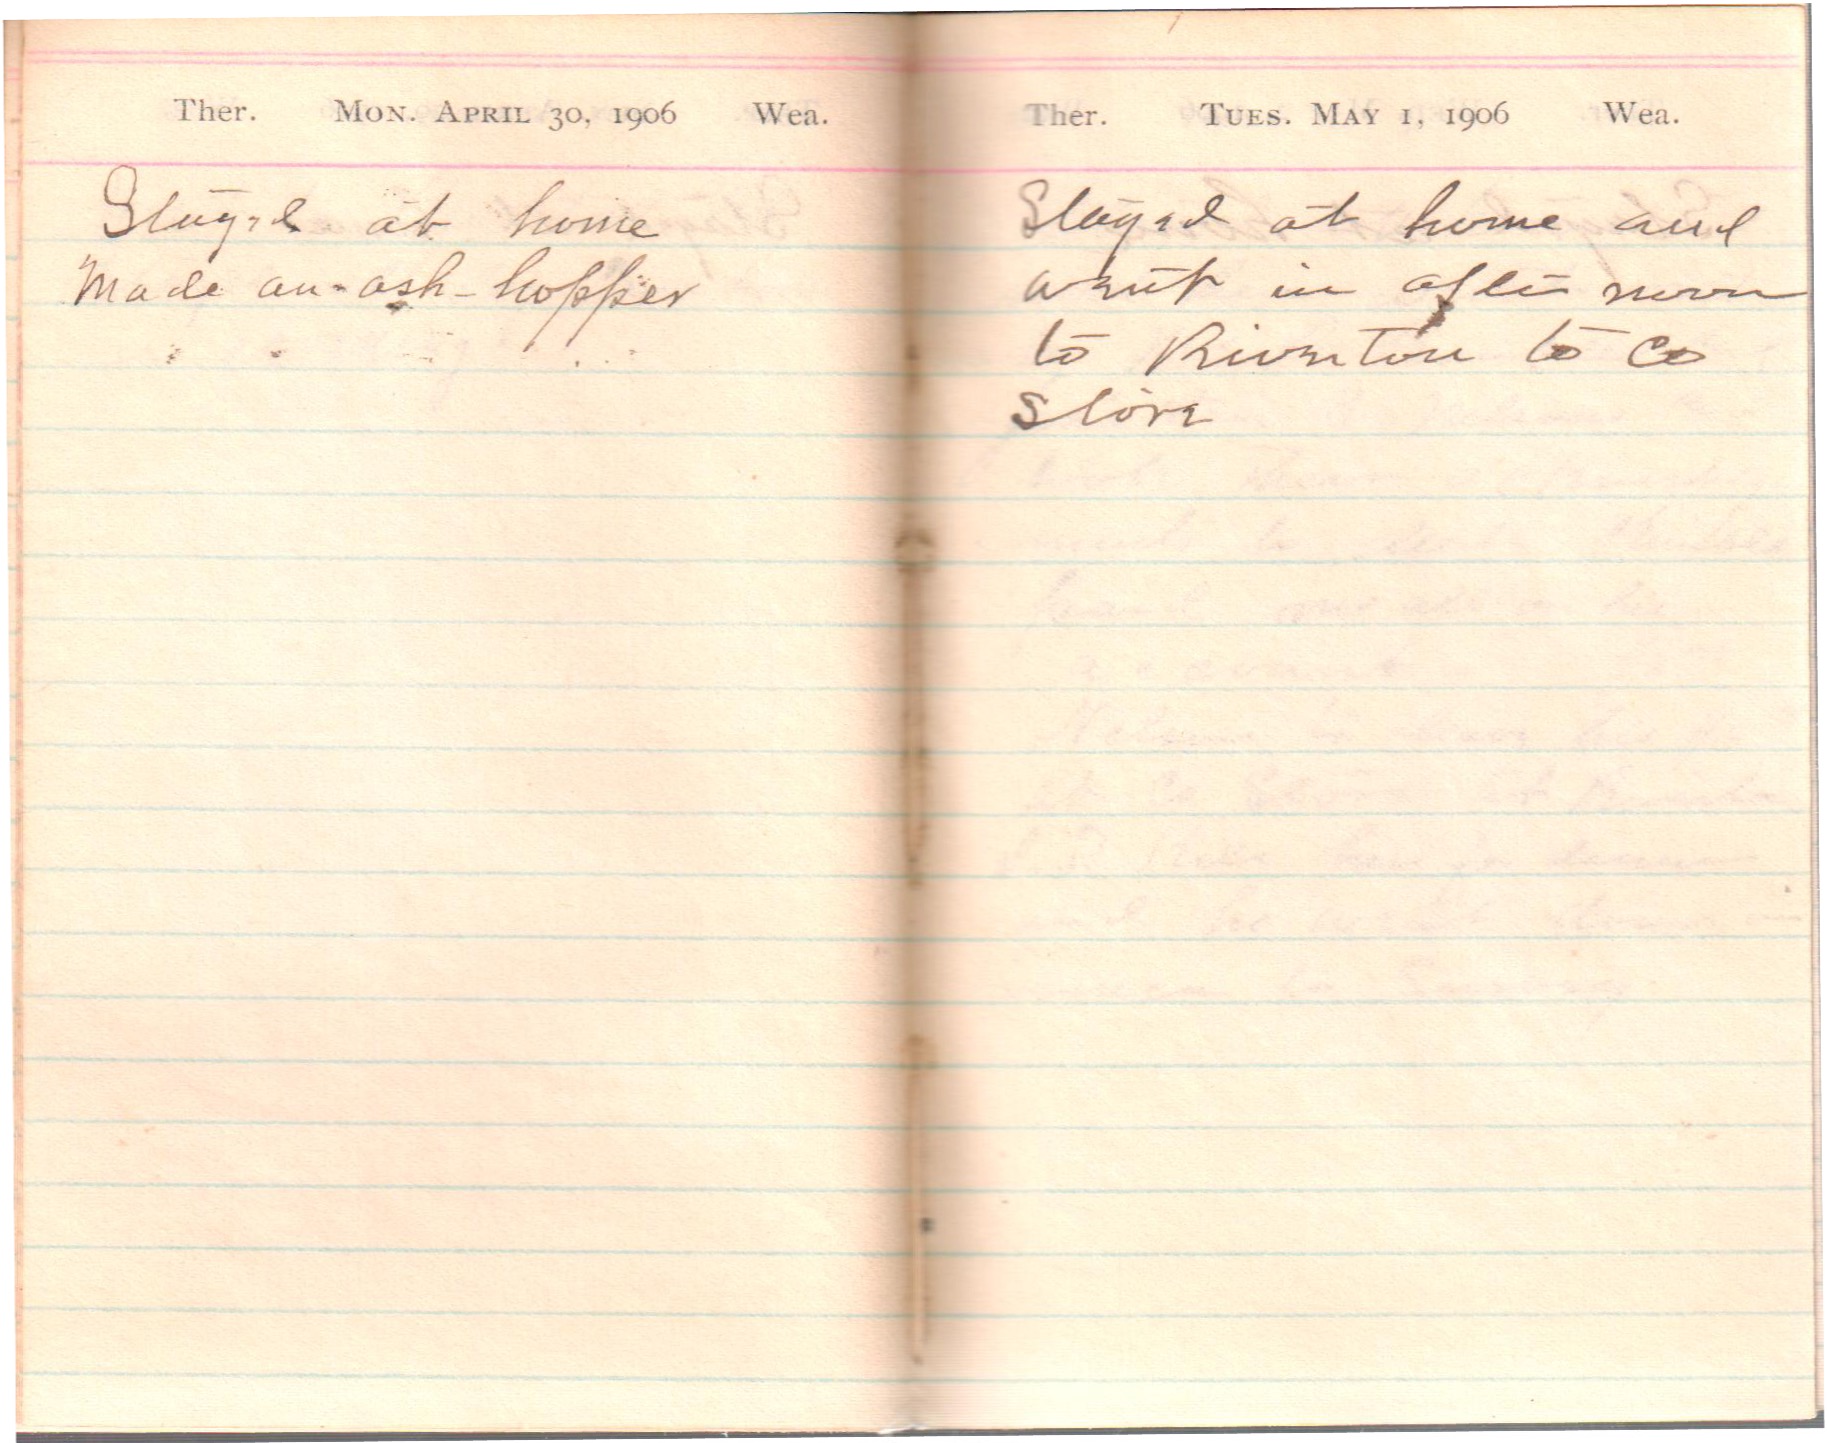 Ther. Mon. April 30, 1906 Wea.
Stayed at home
Made an-ash-hopper
Ther. Tues. May 1, 1906 Wea.
Stayed at home and
went in after noon
to Riverton to Co
Store